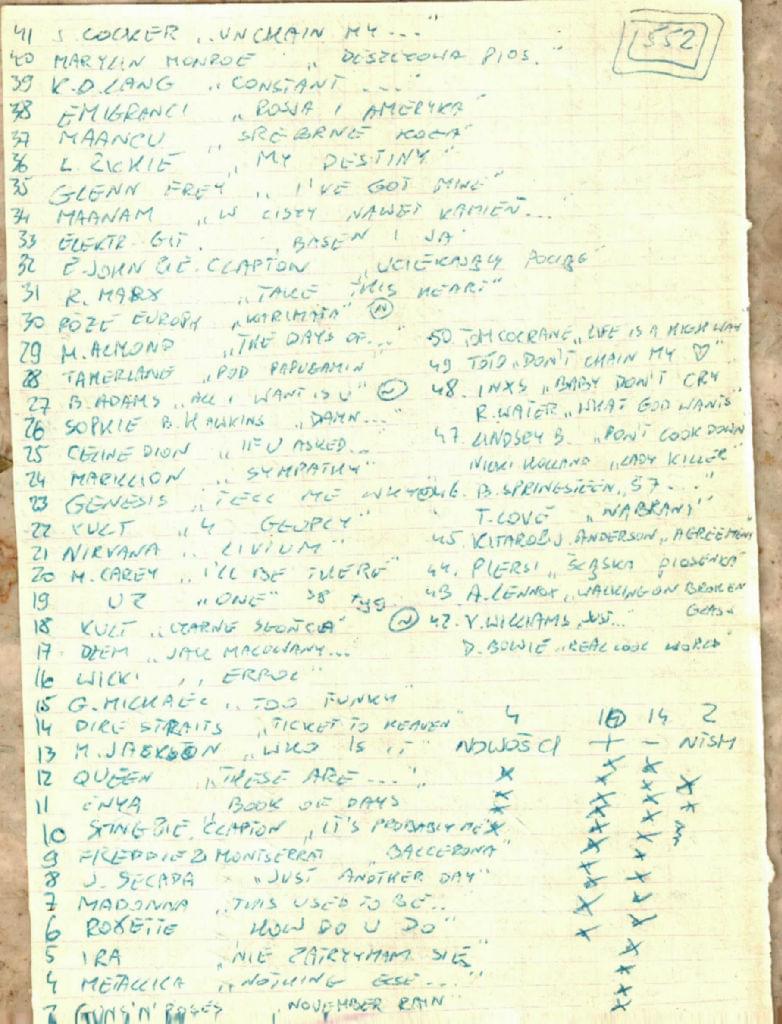 41 J. COCKER „UNCHAIN MY ..."
552
40 MARYLIN MONROE „DESZCZOWA PIOS."
39 K.D. LANG „CONSTANT ...."
38 EMIGRANCI „ROSJA I AMERYKA"
37 MAANCU „SREBRNE KOŁA"
36 L. „MY DESTINY"
35 GLENN FREY „I'VE GOT MINE"
34 MAANAM „W CISZY NAWET KAMIEŃ..."
33 ELEKTR. GIT. „BASEN I JA"
32 E. JOHN & E. CLAPTON „UCIEKAJĄCY POCIĄG"
31 R. MARX „TAKE THIS HEART"
30 RÓŻE EUROPY „KARIMATA" N
29 M. ALMOND „THE DAYS OF..."
28 TAMERLANE „POD PAPUGAMI"
27 B. ADAMS „ALL I WANT IS U"
26 SOPHIE B. HAWKINS „DAMN..."
25 CELINE DION „IF U ASKED..
24 MARILLION „SYMPATHY"
23 GENESIS „TELL ME WHY"
22 KULT „4 GŁUPCY"
21 NIRVANA „LITIUM"
20 M. CAREY „I'LL BE THERE"
19 U2 „ONE" 38 TYG
18 KULT „CZARNE SŁOŃCA" N
17 DŻEM „JAK MALOWANY...
16 WILKI „ERROL"
15 G. MICHAEL „TOO FUNKY"
14 DIRE STRAITS „TICKET TO HEAVEN"
13 M. JACKSON „WHO IS IT"
12 QUEEN „THESE ARE ..."
11 ENYA BOOK OF DAYS
10 STING & E. CLAPTON „IT'S PROBABLY ME"
9 FREDDIE & MONTSERRAT „BALCELONA"
8 J. SECADA „JUST ANOTHER DAY"
7 MADONNA „THIS USED TO BE..
6 ROXETTE HOW DO U DO"
5 IRA „NIE ZATRZYMAM SIĘ"
4 METALLICA „NOTHING ELSE...."
3 GUNS'N'ROSES NOVEMBER RAIN"
50. TOM COCRANE „LIFE IS A HIGHWAY
49 TOTO „DON'T CHAIN MY ♡"
48. INXS „BABY DON'T CRY
R. WATER „WHAT GOD WANTS"
47. LINDSEY B. „DON'T LOOK DOWN
NICKI HOLLAND „LADY KILLER"
46. B. SPRINGSTEEN „57 ..."
T. LOVE „WABRANY"
45. KITARO & J. ANDERSON „AGREEMENT
44. PIERSI „ŚLĄSKA PIOSENKA"
43 A. LENNOX „WALKING ON BROKEN GLASS
42. V. WILLIAMS „JUST..."
D. BOWIE „REAL COOL WORLD"
4 10 14 2
NOWOŚCI + - NTSM